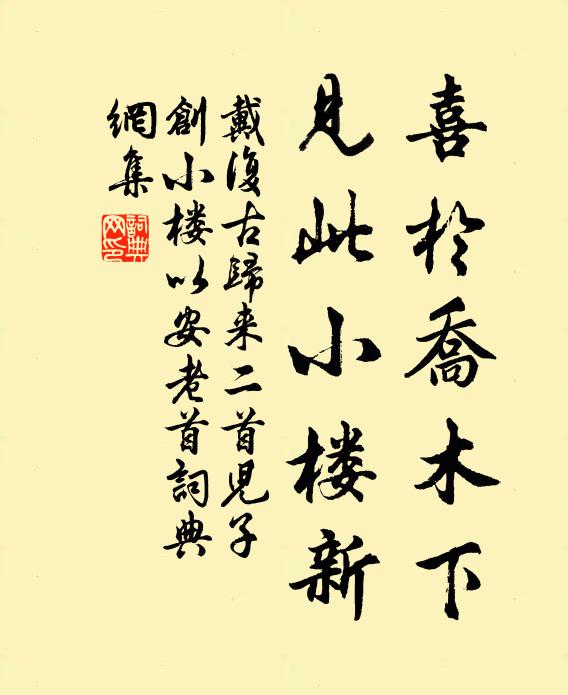 喜於喬木下
見此小楼新
戴復古歸来二首児子
創小楼以安老首詞典
網集
詞典
网印